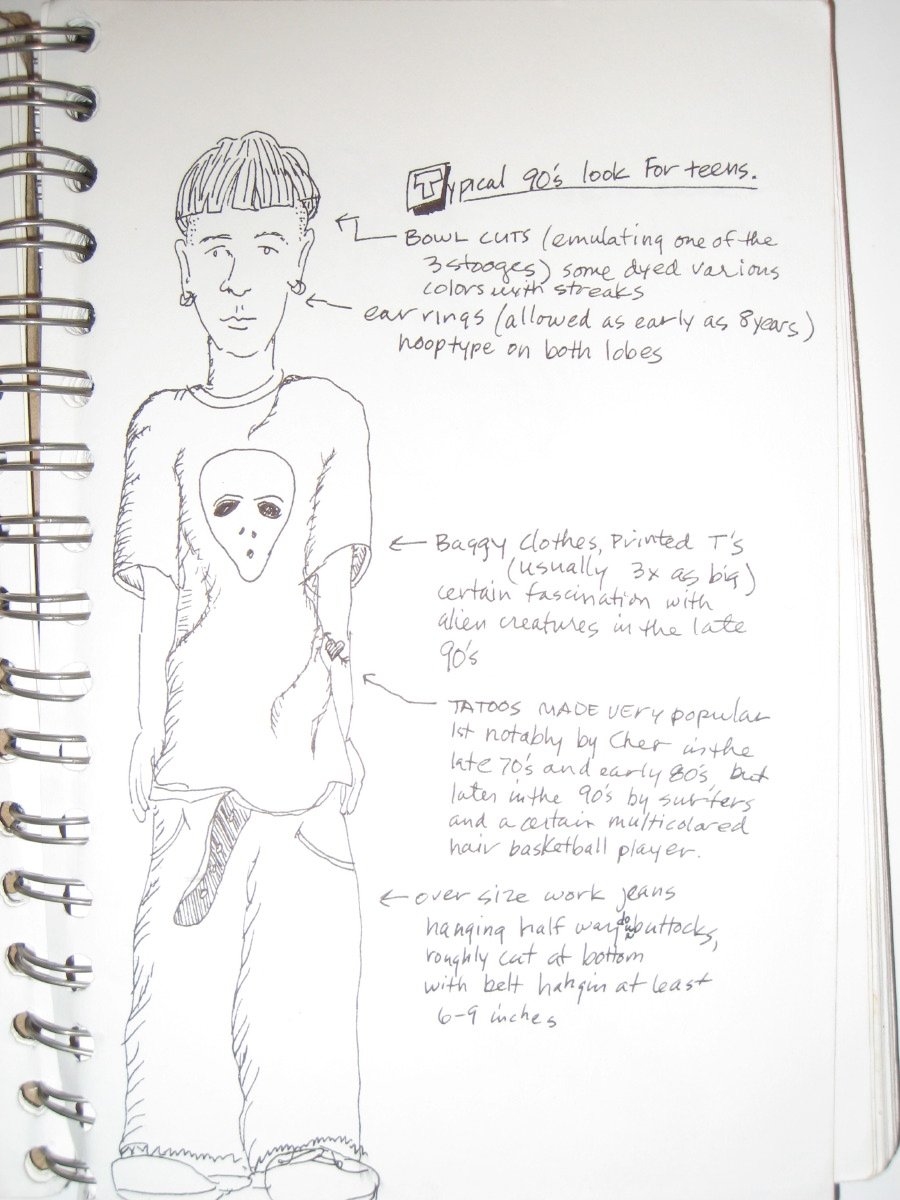 Typical 90's look For teens.
BOWL CUTS (emulating one of the
3 stooges) some dyed various
colors with streaks
ear rings (allowed as early as 8 years)
hoop type on both lobes
Baggy Clothes, Printed T's
(usually 3x as big)
certain fascination with
alien creatures in the late
90's
TATOOS MADE VERY popular
1st notably by Cher in the
late 70's and early 80's but
later in the 90's by surfers
and a certain multicolared
hair basketball player.
over size work jeans
hanging half way down buttocks,
roughly cut at bottom
with belt hangin at least
6-9 inches